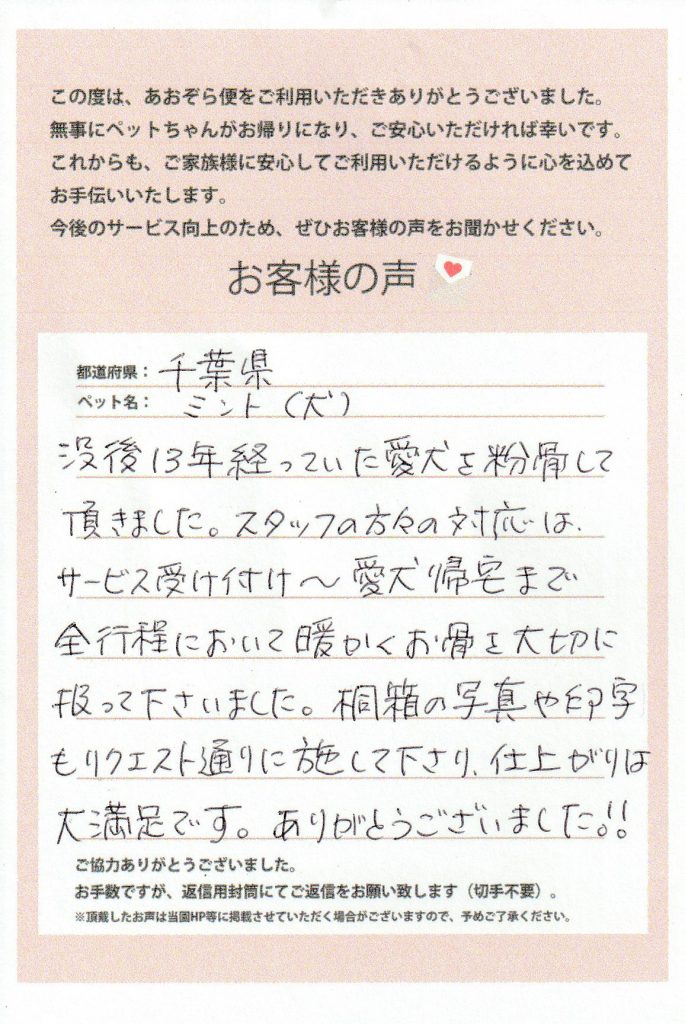 この度は、あおぞら便をご利用いただきありがとうございました。
無事にペットちゃんがお帰りになり、ご安心いただければ幸いです。
これからも、ご家族様に安心してご利用いただけるように心を込めて
お手伝いいたします。
今後のサービス向上のため、ぜひお客様の声をお聞かせください。
お客様の声
都道府県：千葉県
ペット名：ミント（犬）
没後13年経っていた愛犬を粉骨して
頂きました。スタッフの方々の対応は、
サービス受け付け〜愛犬帰宅まで
全行程において暖かくお骨を大切に
扱って下さいました。桐箱の写真や印字
もリクエスト通りに施して下さり、仕上がりは
大満足です。ありがとうございました!!
ご協力ありがとうございました。
お手数ですが、返信用封筒にてご返信をお願い致します（切手不要）。
※頂戴したお声は当園HP等に掲載させていただく場合がございますので、予めご了承ください。